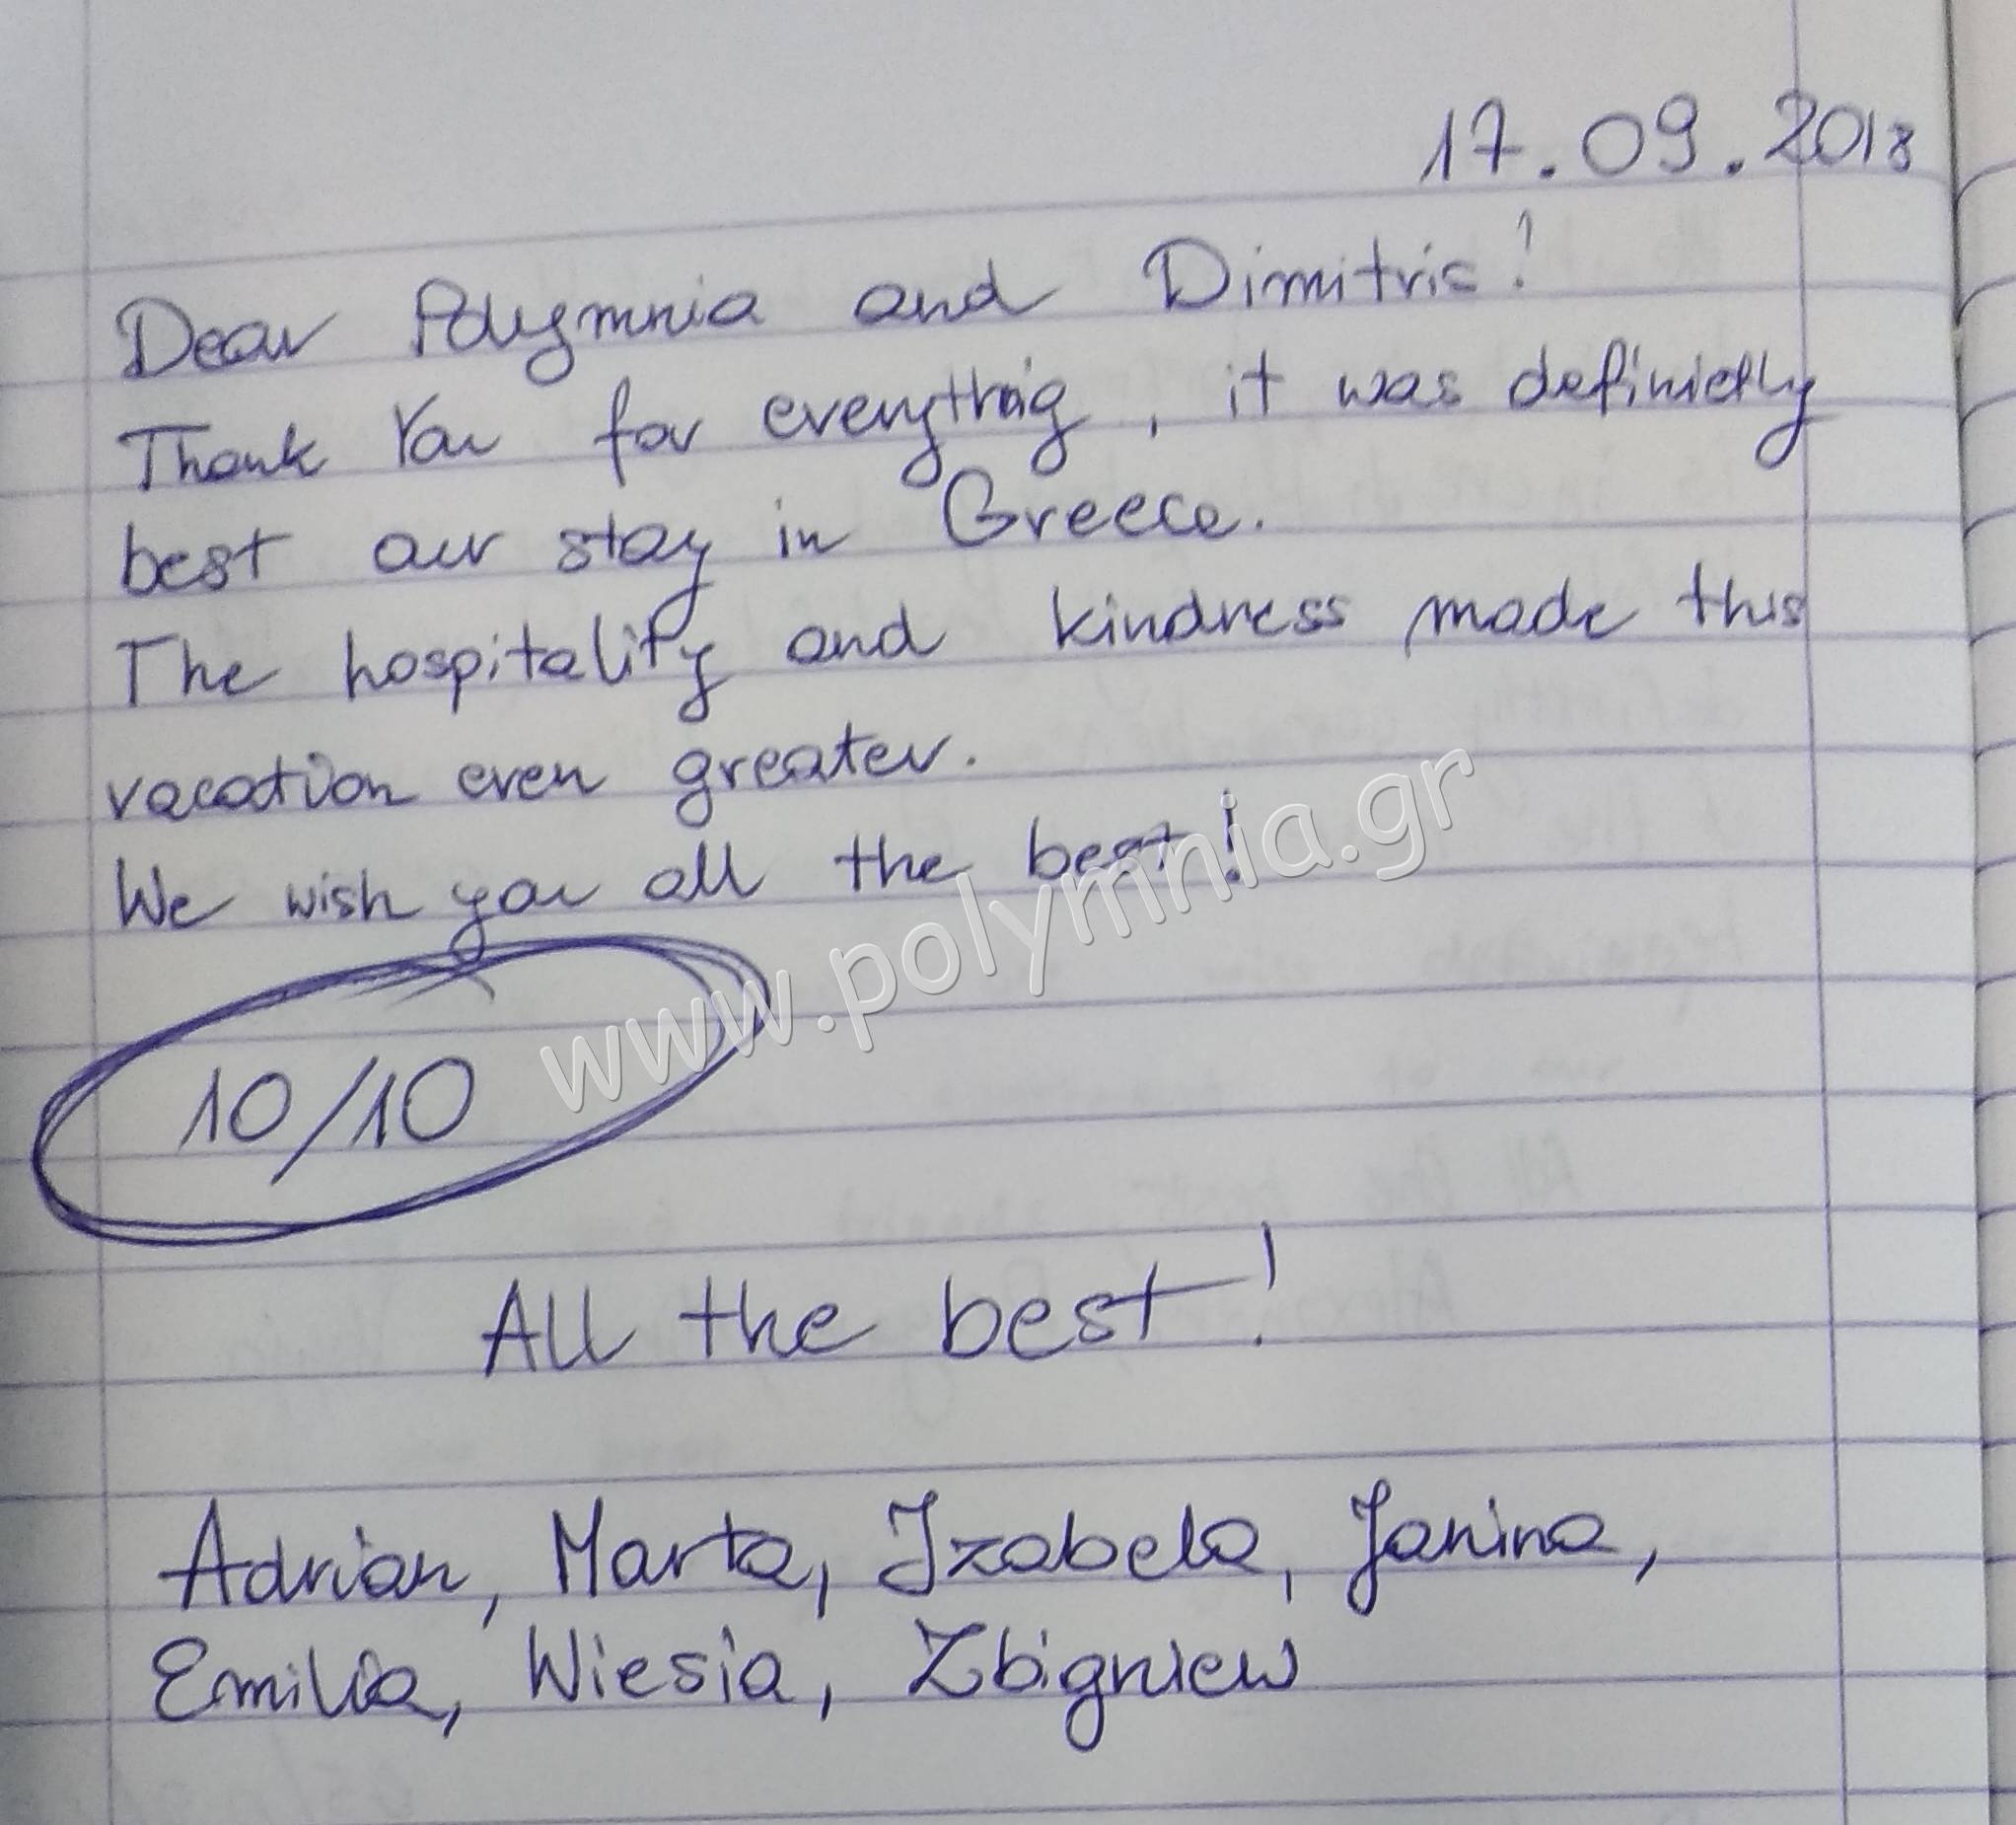 17.09.2018
Dear Polymnia and Dimitris!
Thank You for everything, it was definietly
best our stay in Greece.
The hospitality and kindness made this
vacation even greater.
We wish you all the best!
www.polymnia.gr
10/10
All the best!
Adrian, Marta, Izabela, Janina,
Emilia, Wiesia, Zbigniew